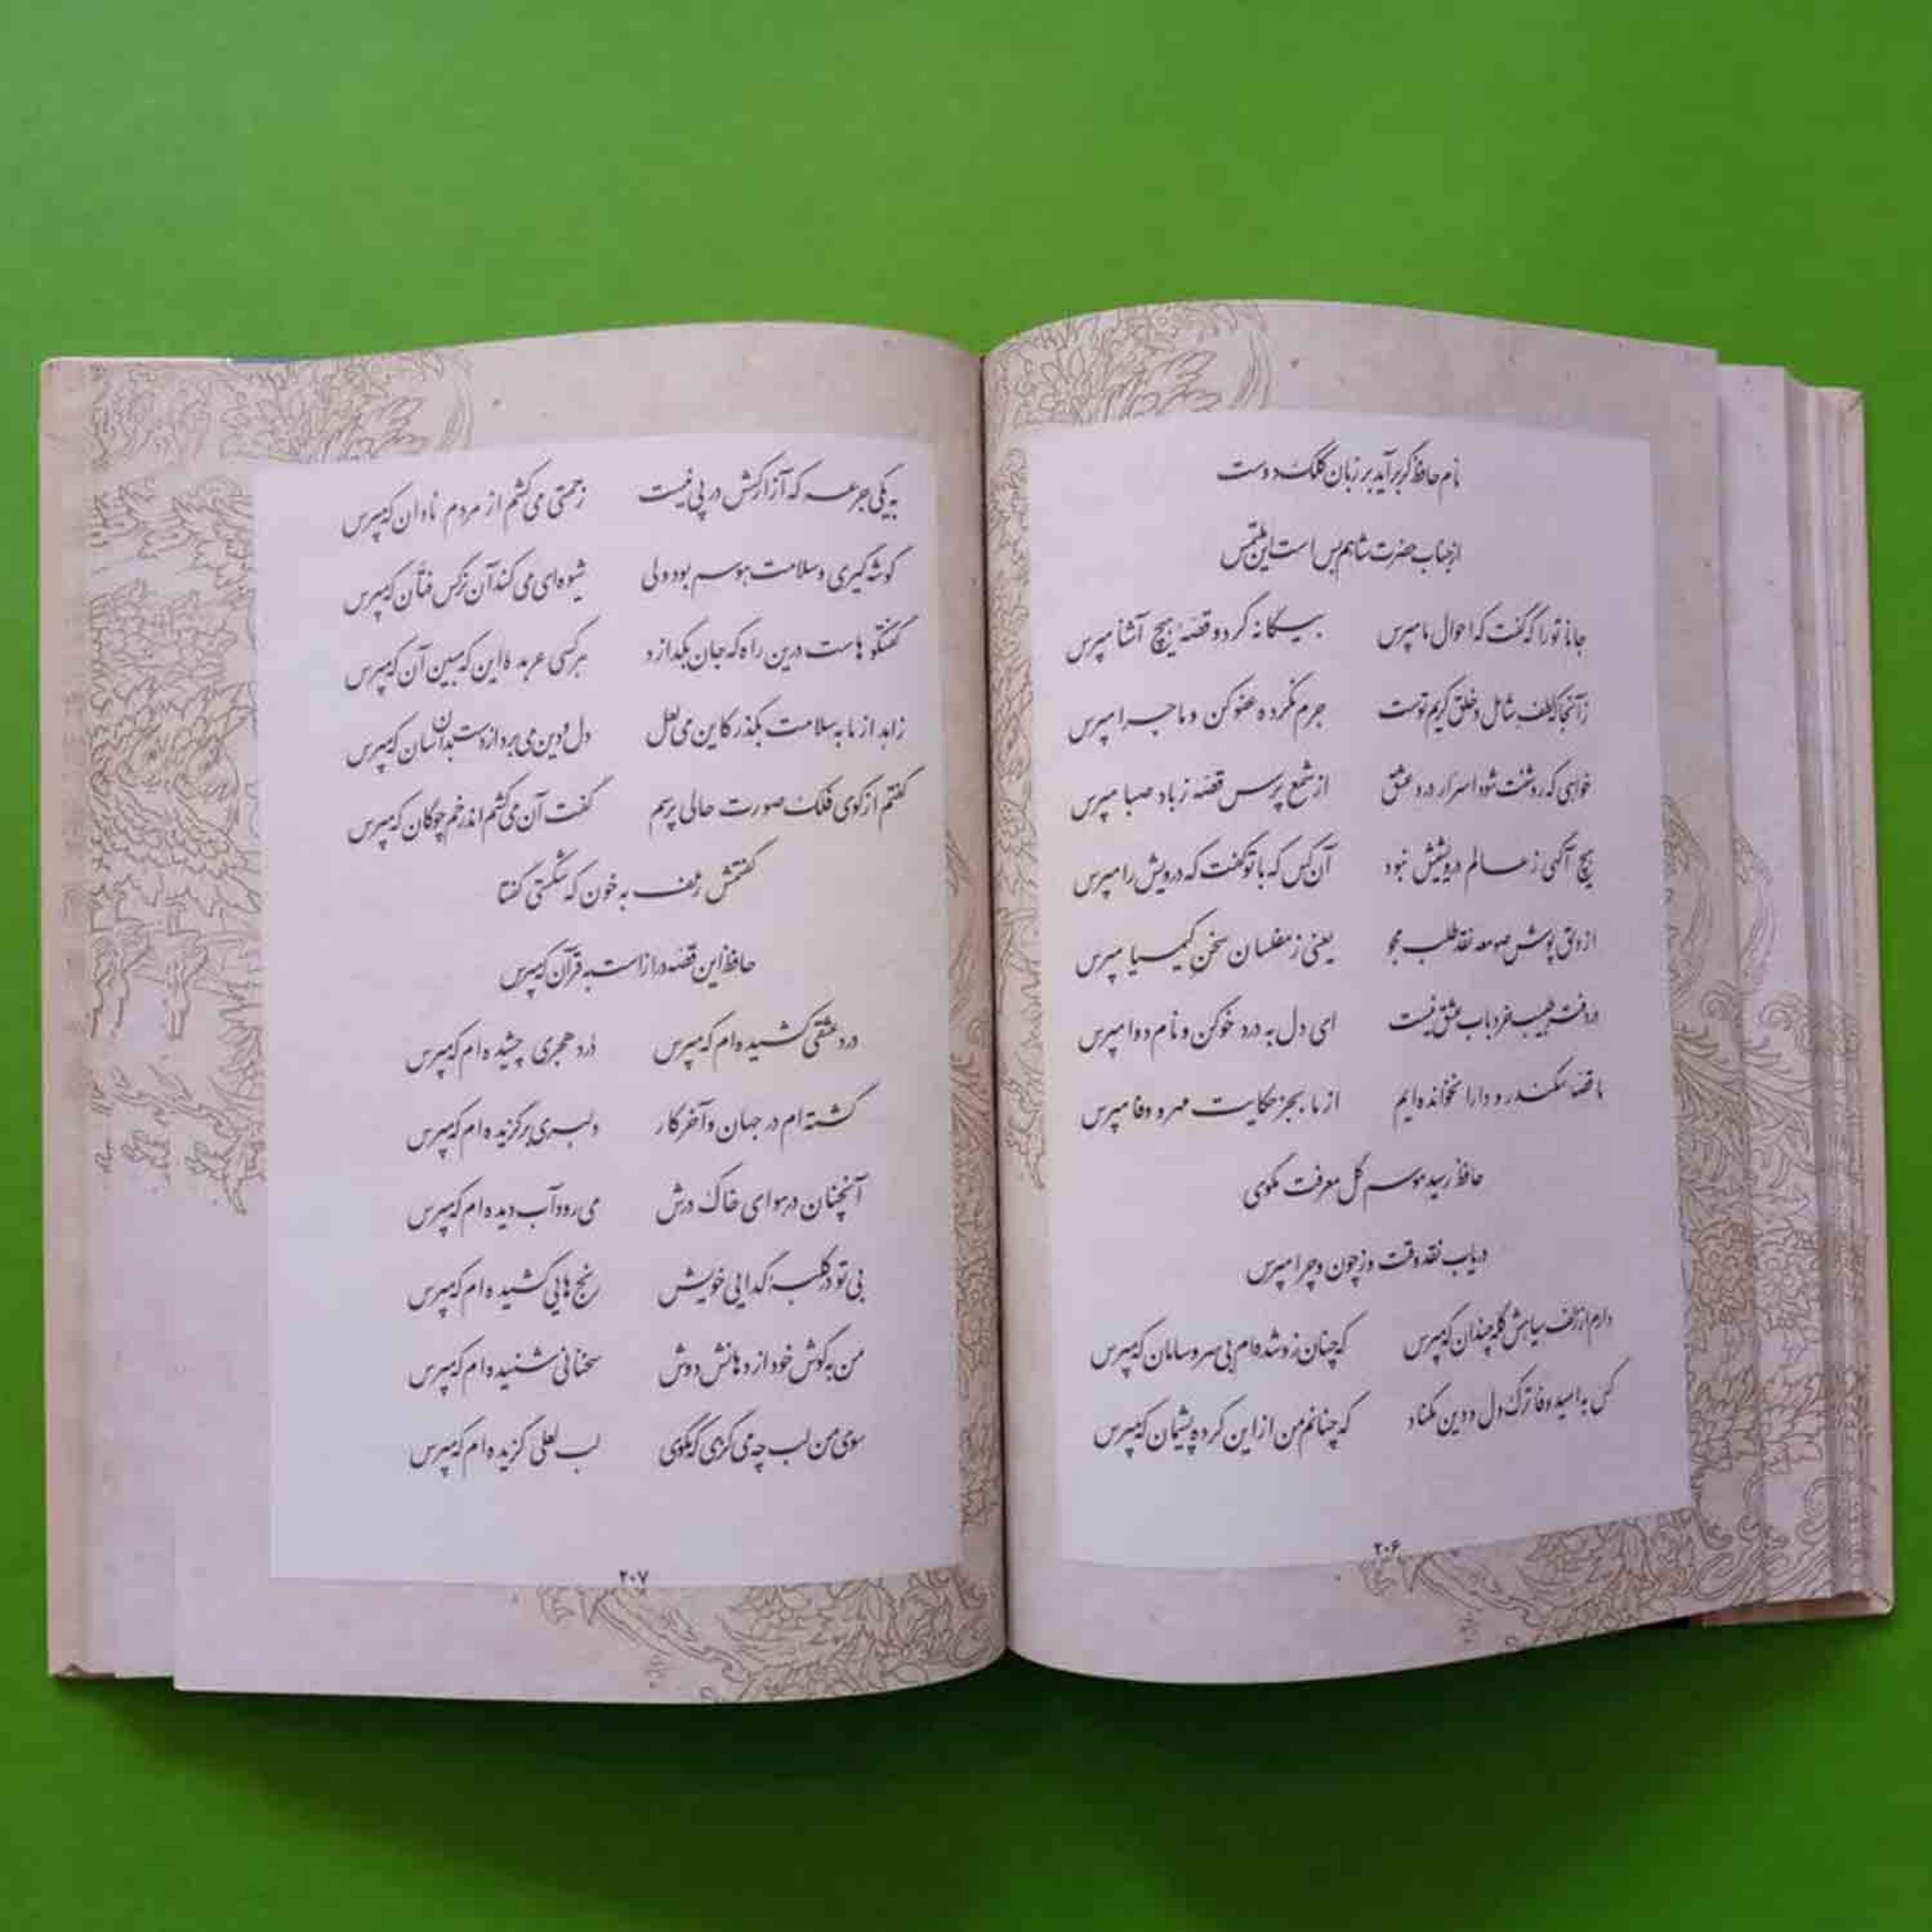 نام حافظ گر برآید بر زبان کلک دوست
از جناب حضرت شاهم بس است این ملتمس
جانا تو را که گفت که احوال ما مپرس بیگانه گرد و قصهٔ هیچ آشنا مپرس
زآنجا که لطف شامل و خلق کریم توست جرم نکرده عفو کن و ماجرا مپرس
خواهی که روشنت شود اسرار درد عشق از شمع پرس قصه ز باد صبا مپرس
هیچ آگهی ز عالم درویشیش نبود آن کس که با تو گفت که درویش را مپرس
از دلق پوش صومعه نقد طلب مجو یعنی ز مفلسان سخن کیمیا مپرس
در دفتر طبیب خرد باب عشق نیست ای دل به درد خو کن و نام دوا مپرس
ما قصه سکندر و دارا نخوانده‌ایم از ما بجز حکایت مهر و وفا مپرس
حافظ رسید موسم گل معرفت مگوی
دریاب نقد وقت و ز چون و چرا مپرس
دارم از زلف سیاهش گله چندان که مپرس که چنان زو شده‌ام بی سر و سامان که مپرس
کس به امید وفا ترک دل و دین مکناد که چنانم من از این کرده پشیمان که مپرس
۲۰۶
به یکی جرعه که آزار کسش در پی نیست زحمتی می‌کشم از مردم نادان که مپرس
گوشه گیری و سلامت هوسم بود ولی شیوه‌ای می‌کند آن نرگس فتان که مپرس
گفتگو هاست درین راه که جان بگدازد هر کسی عربده‌ای این که مبین آن که مپرس
زاهد از ما به سلامت بگذر کاین می لعل دل و دین می‌برد از دست بدان سان که مپرس
گفتم از گوی فلک صورت حالی پرسم گفت آن می‌کشم اندر خم چوگان که مپرس
گفتمش زلف به خون که شکستی گفتا
حافظ این قصه دراز است به قرآن که مپرس
درد عشقی کشیده‌ام که مپرس زهر هجری چشیده‌ام که مپرس
گشته‌ام در جهان و آخر کار دلبری برگزیده‌ام که مپرس
آنچنان در هوای خاک درش می‌رود آب دیده‌ام که مپرس
بی تو در کلبهٔ گدایی خویش رنج هایی کشیده‌ام که مپرس
من به گوش خود از دهانش دوش سخنانی شنیده‌ام که مپرس
سوی من لب چه می‌گزی که مگوی لب لعلی گزیده‌ام که مپرس
۲۰۷